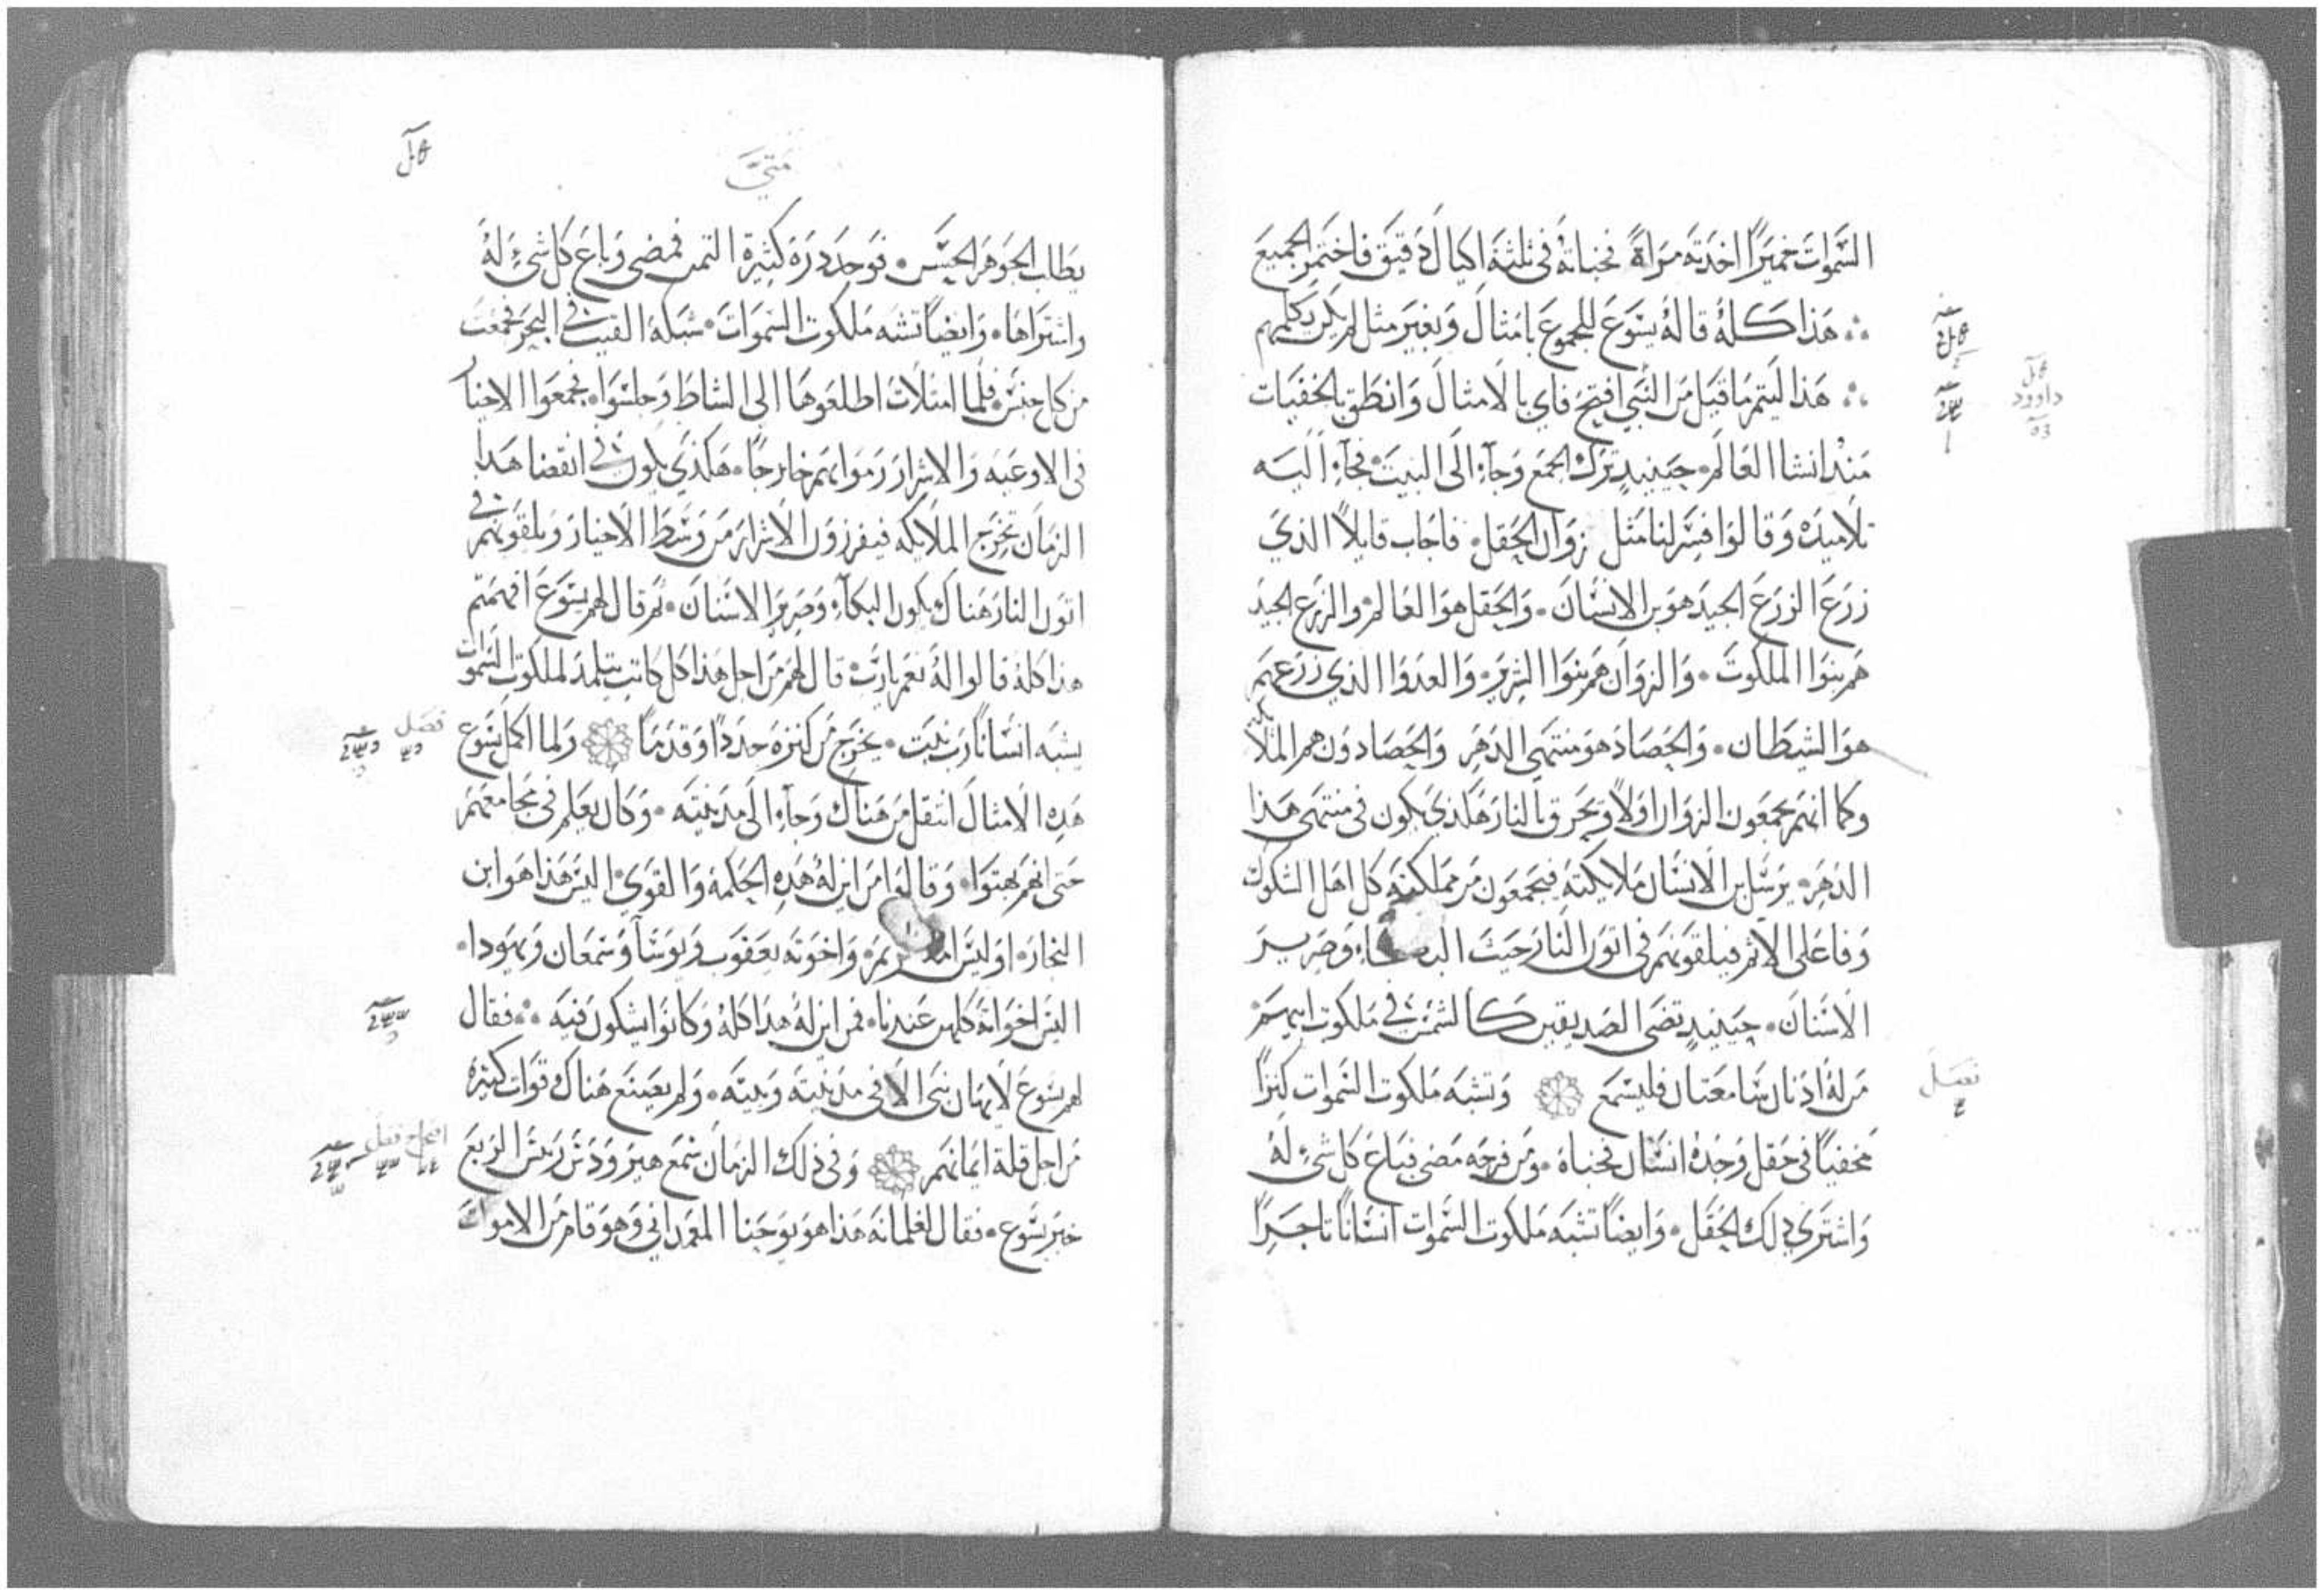 السموات خميرًا اخذته مراةً فخباته في ثلثة اكيال دقيق فاختمر الجميع
هذا كله قاله يسوع للجموع بامثال وبغير مثل لم يكن يكلمهم
هذا ليتم ما قيل من النبي افتح فاي بالامثال وانطق بالخفيات
منذ انشا العالم حينيدٍ ترك الجمع وجآء الى البيت فجآء اليه
تلاميذه وقالوا فسر لنا مثل زوان الحقل فاجاب قايلاً الذي
زرع الزرع الجيد هو بن الانسان والحقل هو العالم والزرع الجيد
هم بنوا الملكوت والزوان هم بنوا الشرير والعدوا الذي زرعهم
هو الشيطان والحصاد هو منتهى الدهر والحصادون هم الملايكه
وكما انهم يجمعون الزوان اولاً وتحرق بالنار هكذي يكون في منتهى هذا
الدهر يرسل بن الانسان ملايكته فيجمعون من مملكته كل اهل الشكوك
وفاعلى الاثم فيلقونهم في اتون النار حيث البكاء وصرير
الاسنان حينيدٍ تضى الصديقين كالشمس في ملكوت ابيهم
من له اذنان سامعتان فليسمع وتشبه ملكوت السموات كنزًا
مخفيًا في حقل وجده انسان فخباه ومن فرحه مضى فباع كل شيءٍ له
واشترى ذلك الحقل وايضًا تشبه ملكوت السموات انسانًا تاجرًا
داوود
فصل
متى
يطلب الجوهر الحسن فوجد دره كثيرة الثمن فمضى وباع كل شيءٍ له
واشتراها وايضًا تشبه ملكوت السموات شبكه القيت في البحر فجمعت
من كل جنس فلما امتلات اطلعوها الى الشاط وجلسوا فجمعوا الاخيار
في الاوعيه والاشرار رموا بهم خارجًا هكذي يكون في انقضا هذا
الزمان تخرج الملايكه فيفرزون الاشرار من وسط الاخيار ويلقونهم في
اتون النار هناك يكون البكآء وصرير الاسنان ثم قال لهم يسوع افهمتم
هذا كله قالوا له نعم يا رب قال لهم من اجل هذا كل كاتب يتلمذ لملكوت السموات
يشبه انسانًا رب بيت يخرج من كنزه جددًا وقدمًا ولما اكمل يسوع
هذه الامثال انتقل من هناك وجآء الى مدينته وكان يعلم في مجامعهم
حتى انهم بهتوا وقالوا من اين له هذه الحكمة والقوي اليس هذا هو ابن
النجار اوليس امه مريم واخوته يعقوب ويوسآ وسمعان ويهودا
اليس اخواته كلهن عندنا فمن اين له هذا كله وكانوا يشكون فيه فقال
لهم يسوع لا يهان نبى الا في مدينته وبيته ولم يصنع هناك قوات كثيره
من اجل قلة ايمانهم وفي ذلك الزمان سمع هيرودس رييس الربع
خبر يسوع فقال لغلمانه هذا هو يوحنا المعمداني وهو قام من الاموات
فصل
فصل